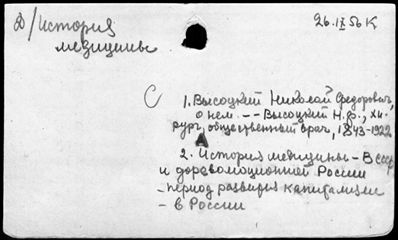 Д/История
медицины
26.IX 56 К
С
1. Высоцкий Николай Федорович,
о нем. -- Высоцкий Н.Ф., хи-
рург, общественный врач, 1843-1922
А
2. История медицины - В СССР
и дореволюционной России
- период развития капитализма
- в России